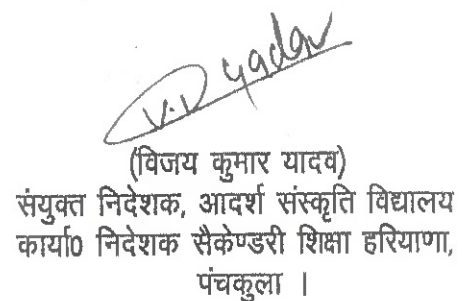 V.K Yadav
(विजय कुमार यादव)
संयुक्त निदेशक, आदर्श संस्कृति विद्यालय
कार्या0 निदेशक सैकेण्डरी शिक्षा हरियाणा,
पंचकुला ।